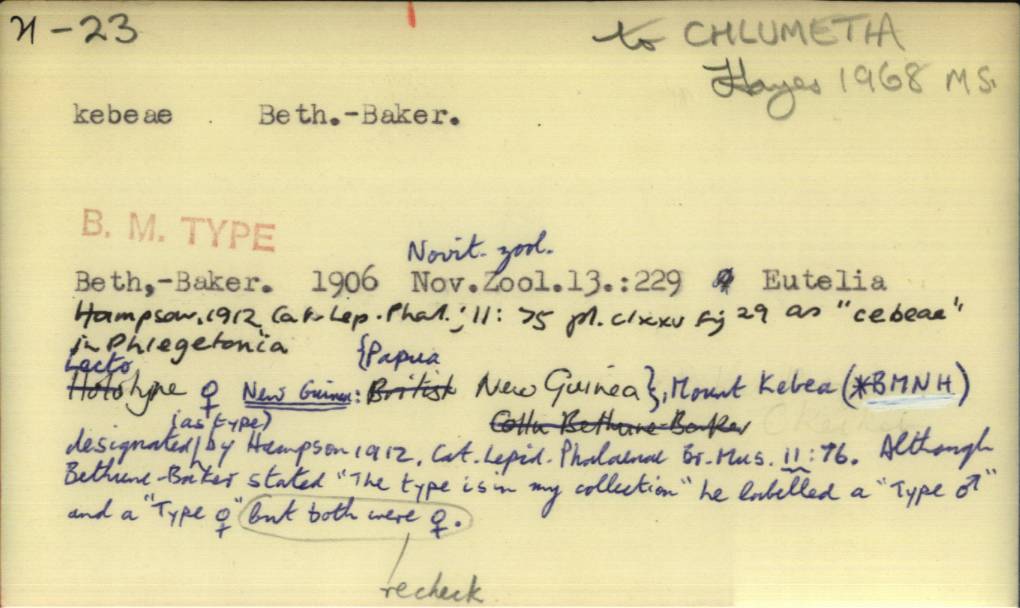 N-23
to CHLUMETIA
Hayes 1968 MS.
kebeae Beth.-Baker.
B. M. TYPE
Novit. zool.
Beth,-Baker. 1906 Nov.Zool.13.:229 Eutelia
Hampson, 1912, Cat. Lep. Phal., 11: 75 pl. clxxv fig 29 as "cebeae"
in Phlegetonia
Lecto {Papua
Holotype ♀ New Guinea: British New Guinea}, Mount Kebea (*BMNH)
(as type) Colln Bethune-Baker
designated by Hampson 1912, Cat. Lepid. Phalaenae Br. Mus. 11:76. Although
Bethune-Baker stated "The type is in my collection" he labelled a "Type ♂"
and a "Type ♀" but both were ♀.
recheck